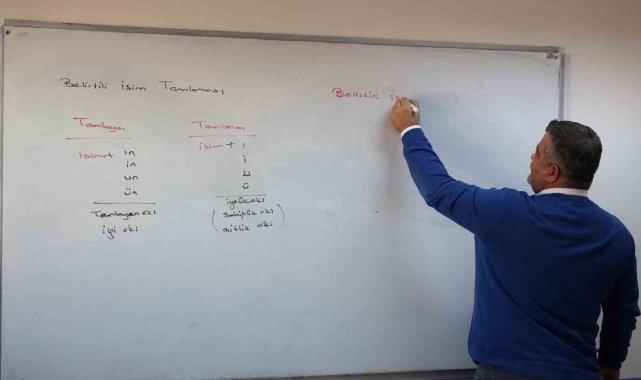 Belirtili isim Tamlaması
Tamlayan
isim+ ın
in
un
ün
Tamlayan eki
ilgi eki
Tamlanan
isim+ ı
i
u
ü
iyelik eki
(sahiplik eki
aitlik eki)